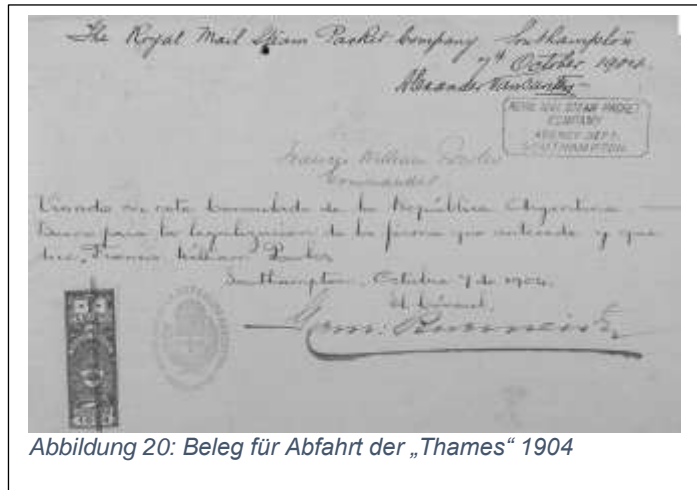 The Royal Mail Steam Packet Company Southampton
7th October 1904.
Alexander
ROYAL MAIL STEAM PACKET
COMPANY
AGENCY DEPT.
SOUTHAMPTON
Francis William
Commander
Visado en este Consulado de la República Argentina
Bueno para la legalizacion de la firma que antecede y que
dice, Francis William
Southampton, Octubre 7 de 1904.
El Cónsul.
Abbildung 20: Beleg für Abfahrt der „Thames“ 1904